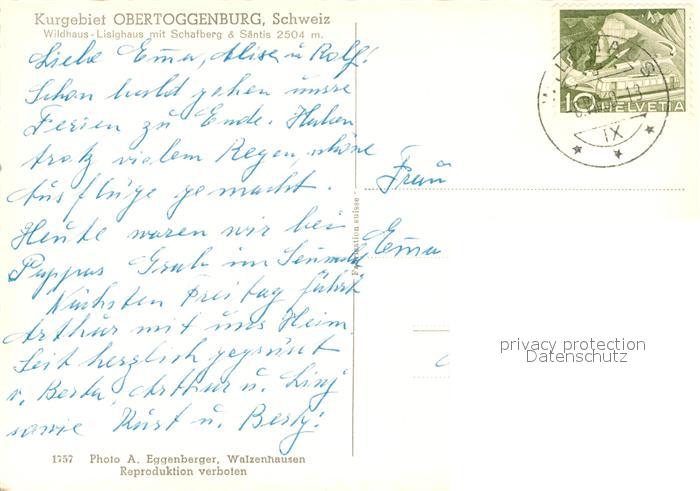 Kurgebiet OBERTOGGENBURG, Schweiz
Wildhaus-Lisighaus mit Schafberg & Säntis 2504 m.
Liebe Emma, Alise u Rolf!
Schon bald gehen unsre
Ferien zu Ende. Haben
trotz vielem Regen, schöne
Ausflüge gemacht.
Heute waren wir bei
Pappas Grab im
Nächsten Freitag fährt
Arthur mit uns Heim.
Seit herzlich gegrüsst
v. Berta, Arthur u.
sowie Kurt u. Berty!
1757 Photo A. Eggenberger, Walzenhausen
Reproduktion verboten
suisse
10 HELVETIA
IX
Frau
Emma
privacy protection
Datenschutz